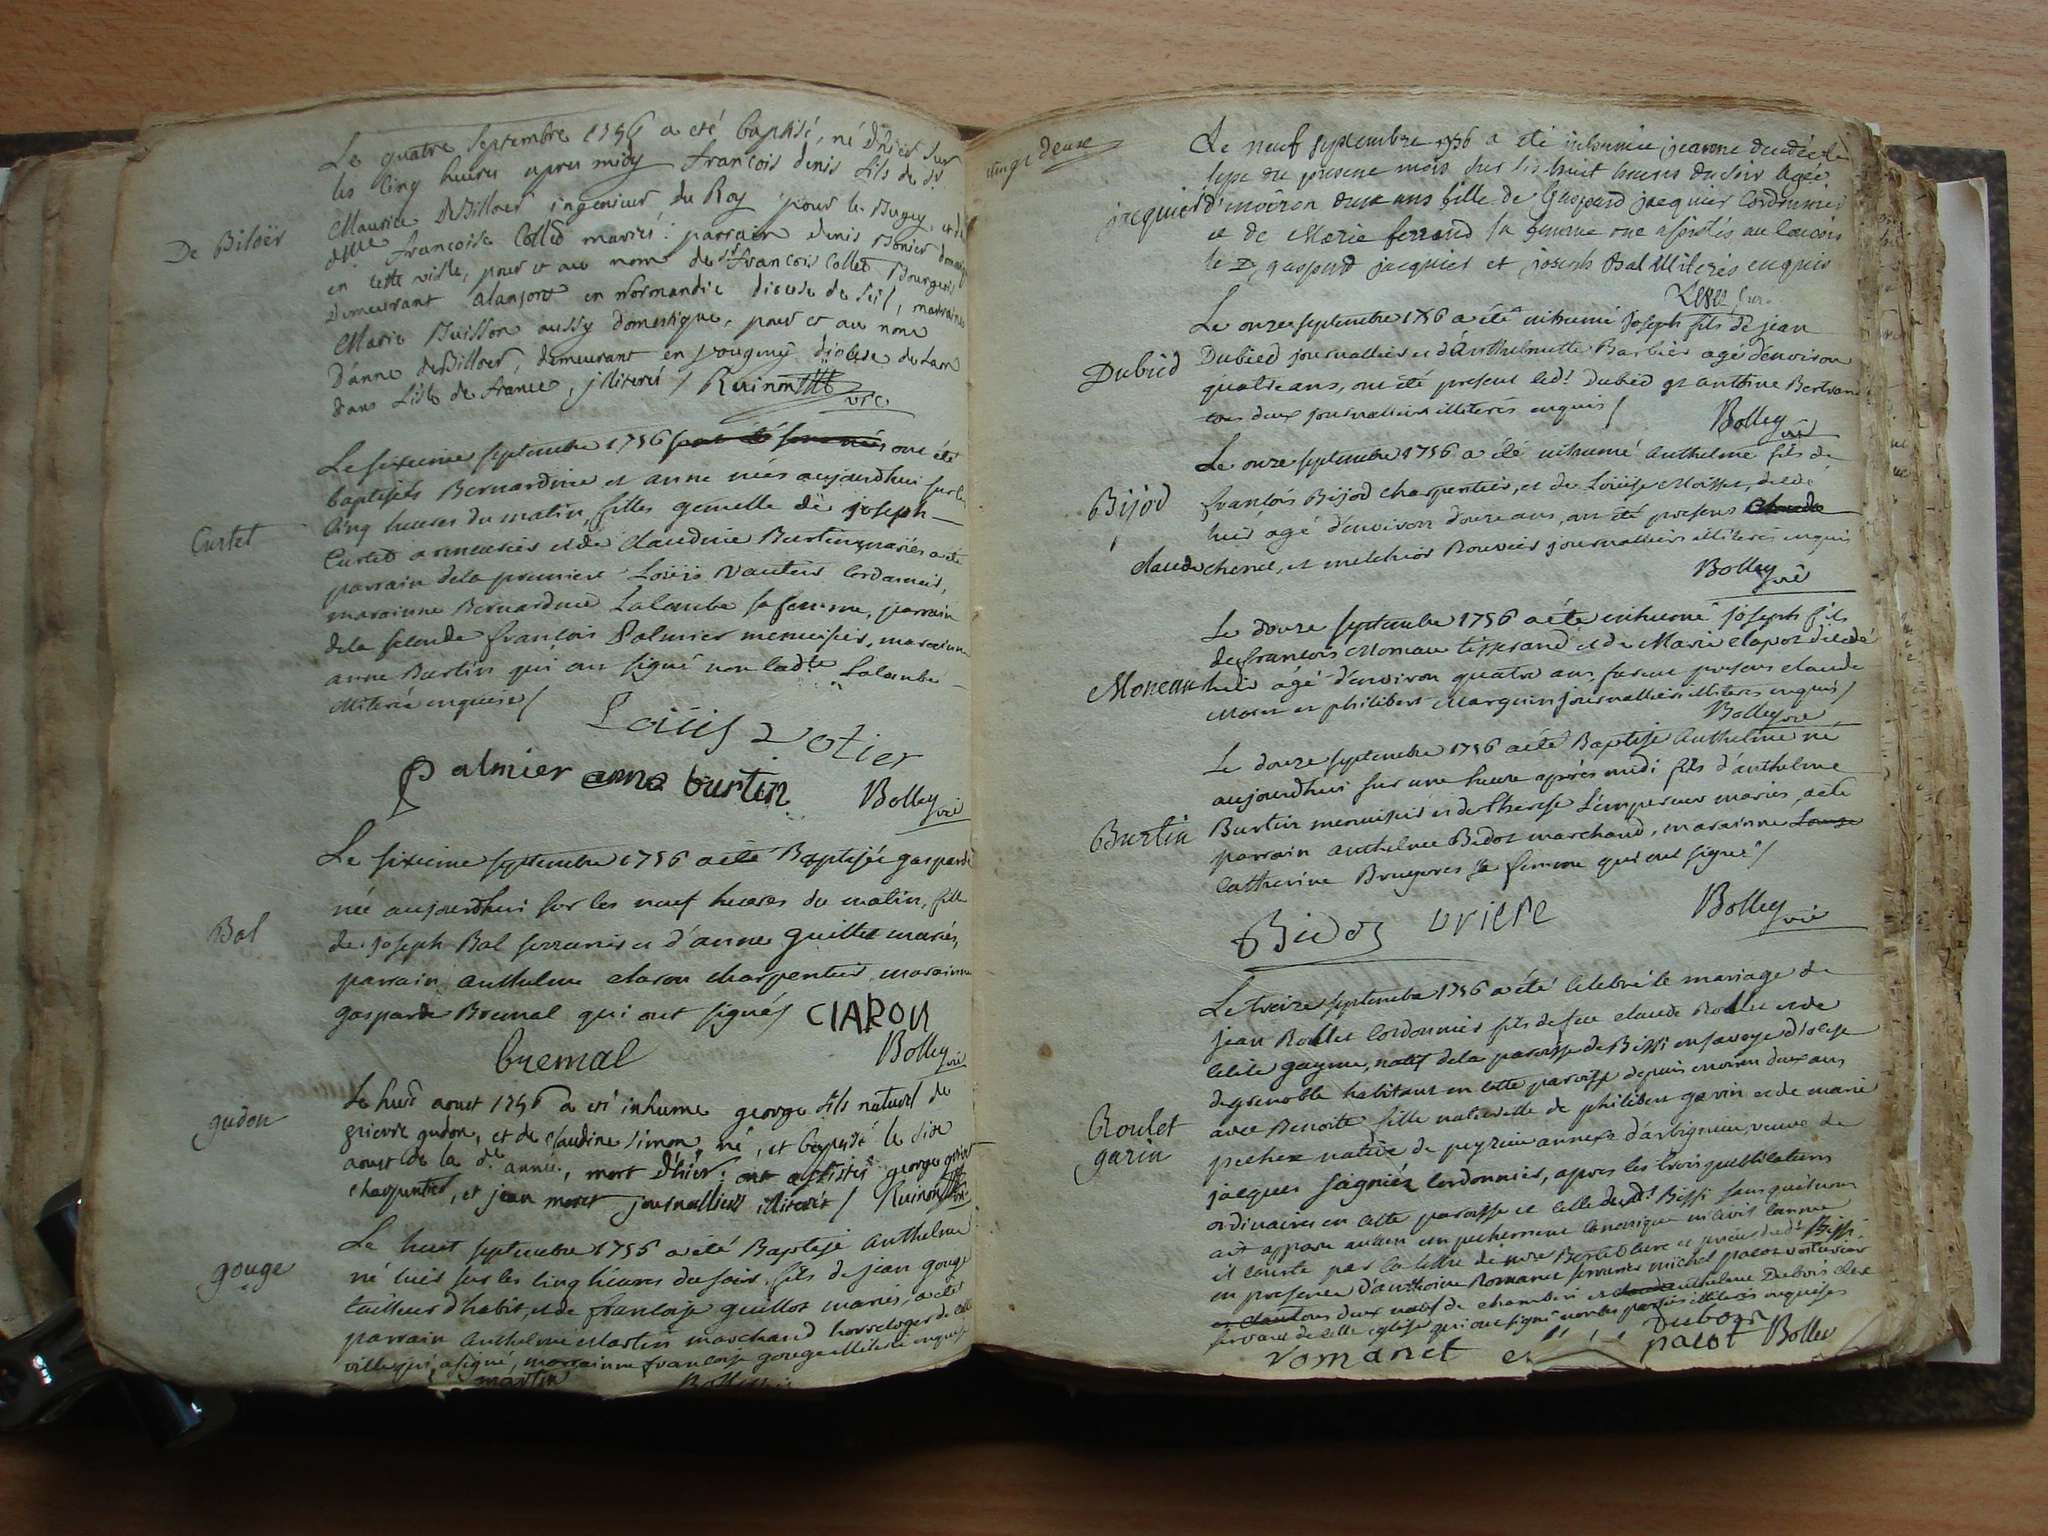 Le quatre septembre 1756 a eté baptisé, né d'hier sur
les cinq heures apres midy françois denis fils de Sr
De Biloër
Maurice DeBilloer ingenieur du Roy pour le Bugey, et de
dlle françoise Collet mariés: parrain denis Monier
en cette ville, pour et au nom de Sr françois Collet Bourgeois
demeurant alançon en normandie diocese de, marraine
Marie Buisson aussy domestique, pour et au nom
d'anne deBilloer, demeurant en diocese de Laon
dans l'isle de france, jlliterés / Ruinon vre
Le sixieme septembre 1756 ont été
baptisées Bernardine et anne nées aujourdhui sur les
cinq heures du matin, filles gemelle de joseph
Curtet
Curtet armurier et de claudine Burtin mariés a été
parrain de la premiere Loüis Vautier Cordonnier,
marainne Bernardine Lalombe sa femme, parrain
dela seconde françois Palmier menuisier, marainne
anne Burtin qui ont signé non ladte Lalombe
illiterée enquise /
Loüis Votier
Palmier anne burtin Bolley vre
Le sixieme septembre 1756 a été Baptisée gasparde
née aujourdhui sur les neuf heures du matin, fille
Bal
de joseph Bal serrurier et d'anne guillet mariés,
parrain anthelme claron charpentier, marainne
gasparde Bremal qui ont signés / CIARON
bremal Bolley vre
Le huit aoust 1756 a eté inhumé george fils naturel de
gudon
pierre gudon, et de claudine simon, né, et baptisé le six
aoust de la de année, mort d'hier: ont assistés george
charpentier, et jean moret journalliers illiterés / Ruinon vre
Le huit septembre 1756 a été Baptisé anthelme
né hier sur les cinq heures du soir, fils de jean gouge
gouge
tailleur d'habit, et de françoise guillot mariés, a été
parrain anthelme Martin marchand horloger de cette
ville qui a signé, marrainne françoise gouge illiterée enquise
martin Bolley
vingt deux
Le neuf septembre 1756 a été inhumée jeanne decedée le
sept du present mois sur les huit heures du soir agée
jacquier
d'environ deux ans fille de Gaspard jacquier Cordonnier
et de Marie ferrand sa femme ont assistés au Convois
le Dt gaspard jacquier et joseph Bal illiterés enquis
Le onze septembre 1756 a été inhumé joseph fils de jean
Dubied
Dubied journallier et d'Anthelmette Barbier agé d'environ
quatre ans, ont été present ledt Dubied et anthoine Bertrand
tous deux journalliers illiterés enquis / Bolley vre
Le onze septembre 1756 a été inhumé anthelme fils de
Bijod
françois Bijod charpentier, et de Loüise Moisson, decedé
hier agé d'environ douze ans, ont été presens
claude chenel, et melchior Bouvier journalliers illiterés enquis
Bolley vre
Le douze septembre 1756 a été inhumé joseph fils
de françois Moneau tisserand et de Marie clapot decedé
Moneau
hier agé d'environ quatre ans, furent presens claude
Moret et philibert Marguin journalliers illiterés enquis /
Bolley vre
Le douze septembre 1756 a été Baptisé Anthelme né
aujourdhui sur une heure après midi fils d'anthelme
Burtin
Burtin menuisier et de therese L'empereur mariés, a été
parrain anthelme Bidot marchand, marainne
Catherine Bruyeres sa femme qui ont signé /
Bidoz briere Bolley vre
Le treize septembre 1756 a été celebré le mariage de
jean Roulet cordonnier fils de feu claude Roulet et de
natif dela paroisse de Bissi en savoye diocese
de grenoble habitant en cette paroisse depuis environ deux ans
Roulet
avec Benoite fille naturelle de philibert garin et de marie
garin
pichex native de peyrieu annexe d'arbigneu, veuve de
jacques cordonnier, apres les trois publications
ordinaires en cette paroisse et celle dudt Bissi sans qu'il nous
ait apparu aucun empechement canonique ni civil comme
il conste par la lettre de curé dudt Bissi
en presence d'anthoine Romanet serrurier michel pacot
tous deux natif de chamberi et anthelme Dubois clerc
servant de cette eglise qui ont signé non les parties illiterées enquises
Dubois
romanet et pacot Bolley